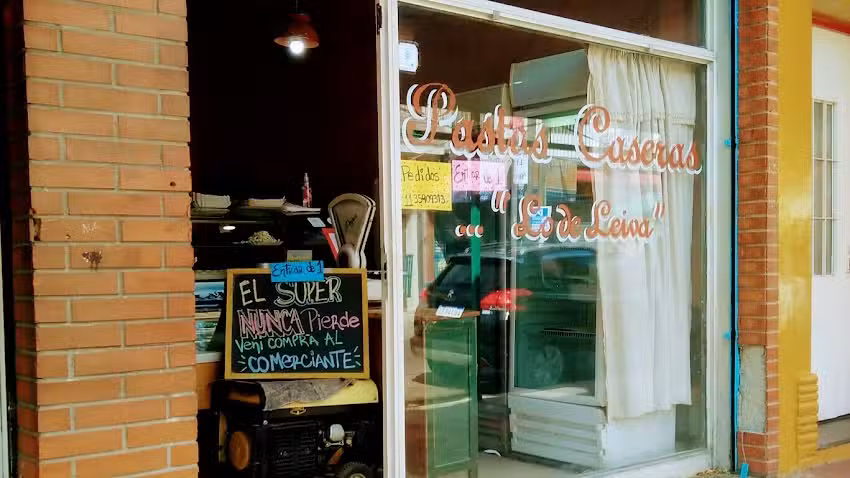 Pastas Caseras
... "Lo de Leiva"
Pedidos
Entrar de 1
Entrar de 1
EL SUPER
NUNCA Pierde
Vení COMPRA AL
COMERCIANTE